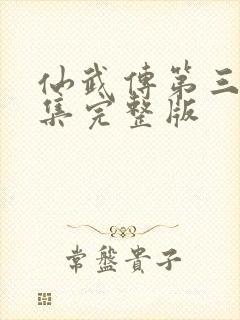 仙武傳第三
集完整版
常盤貴子